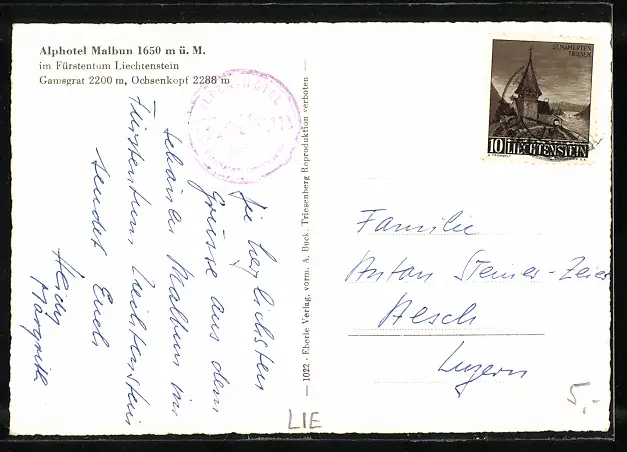 Alphotel Malbun 1650 m ü. M.
im Fürstentum Liechtenstein
Gamsgrat 2200 m, Ochsenkopf 2288 m
ALPEN-HOTEL
Die herzlichsten
Grüsse aus dem
schönen Malbun im
Fürstentum Lichtenstein
sendet Euch
Heidy
Margrith
— 1022 · Eberle Verlag, vorm. A. Buck, Triesenberg Reproduktion verboten —
ST. MAMERTEN
TRIESEN
10 LIECHTENSTEIN
Familie
Anton Steiner-Zeier
Aesch
Luzern
LIE
5,-